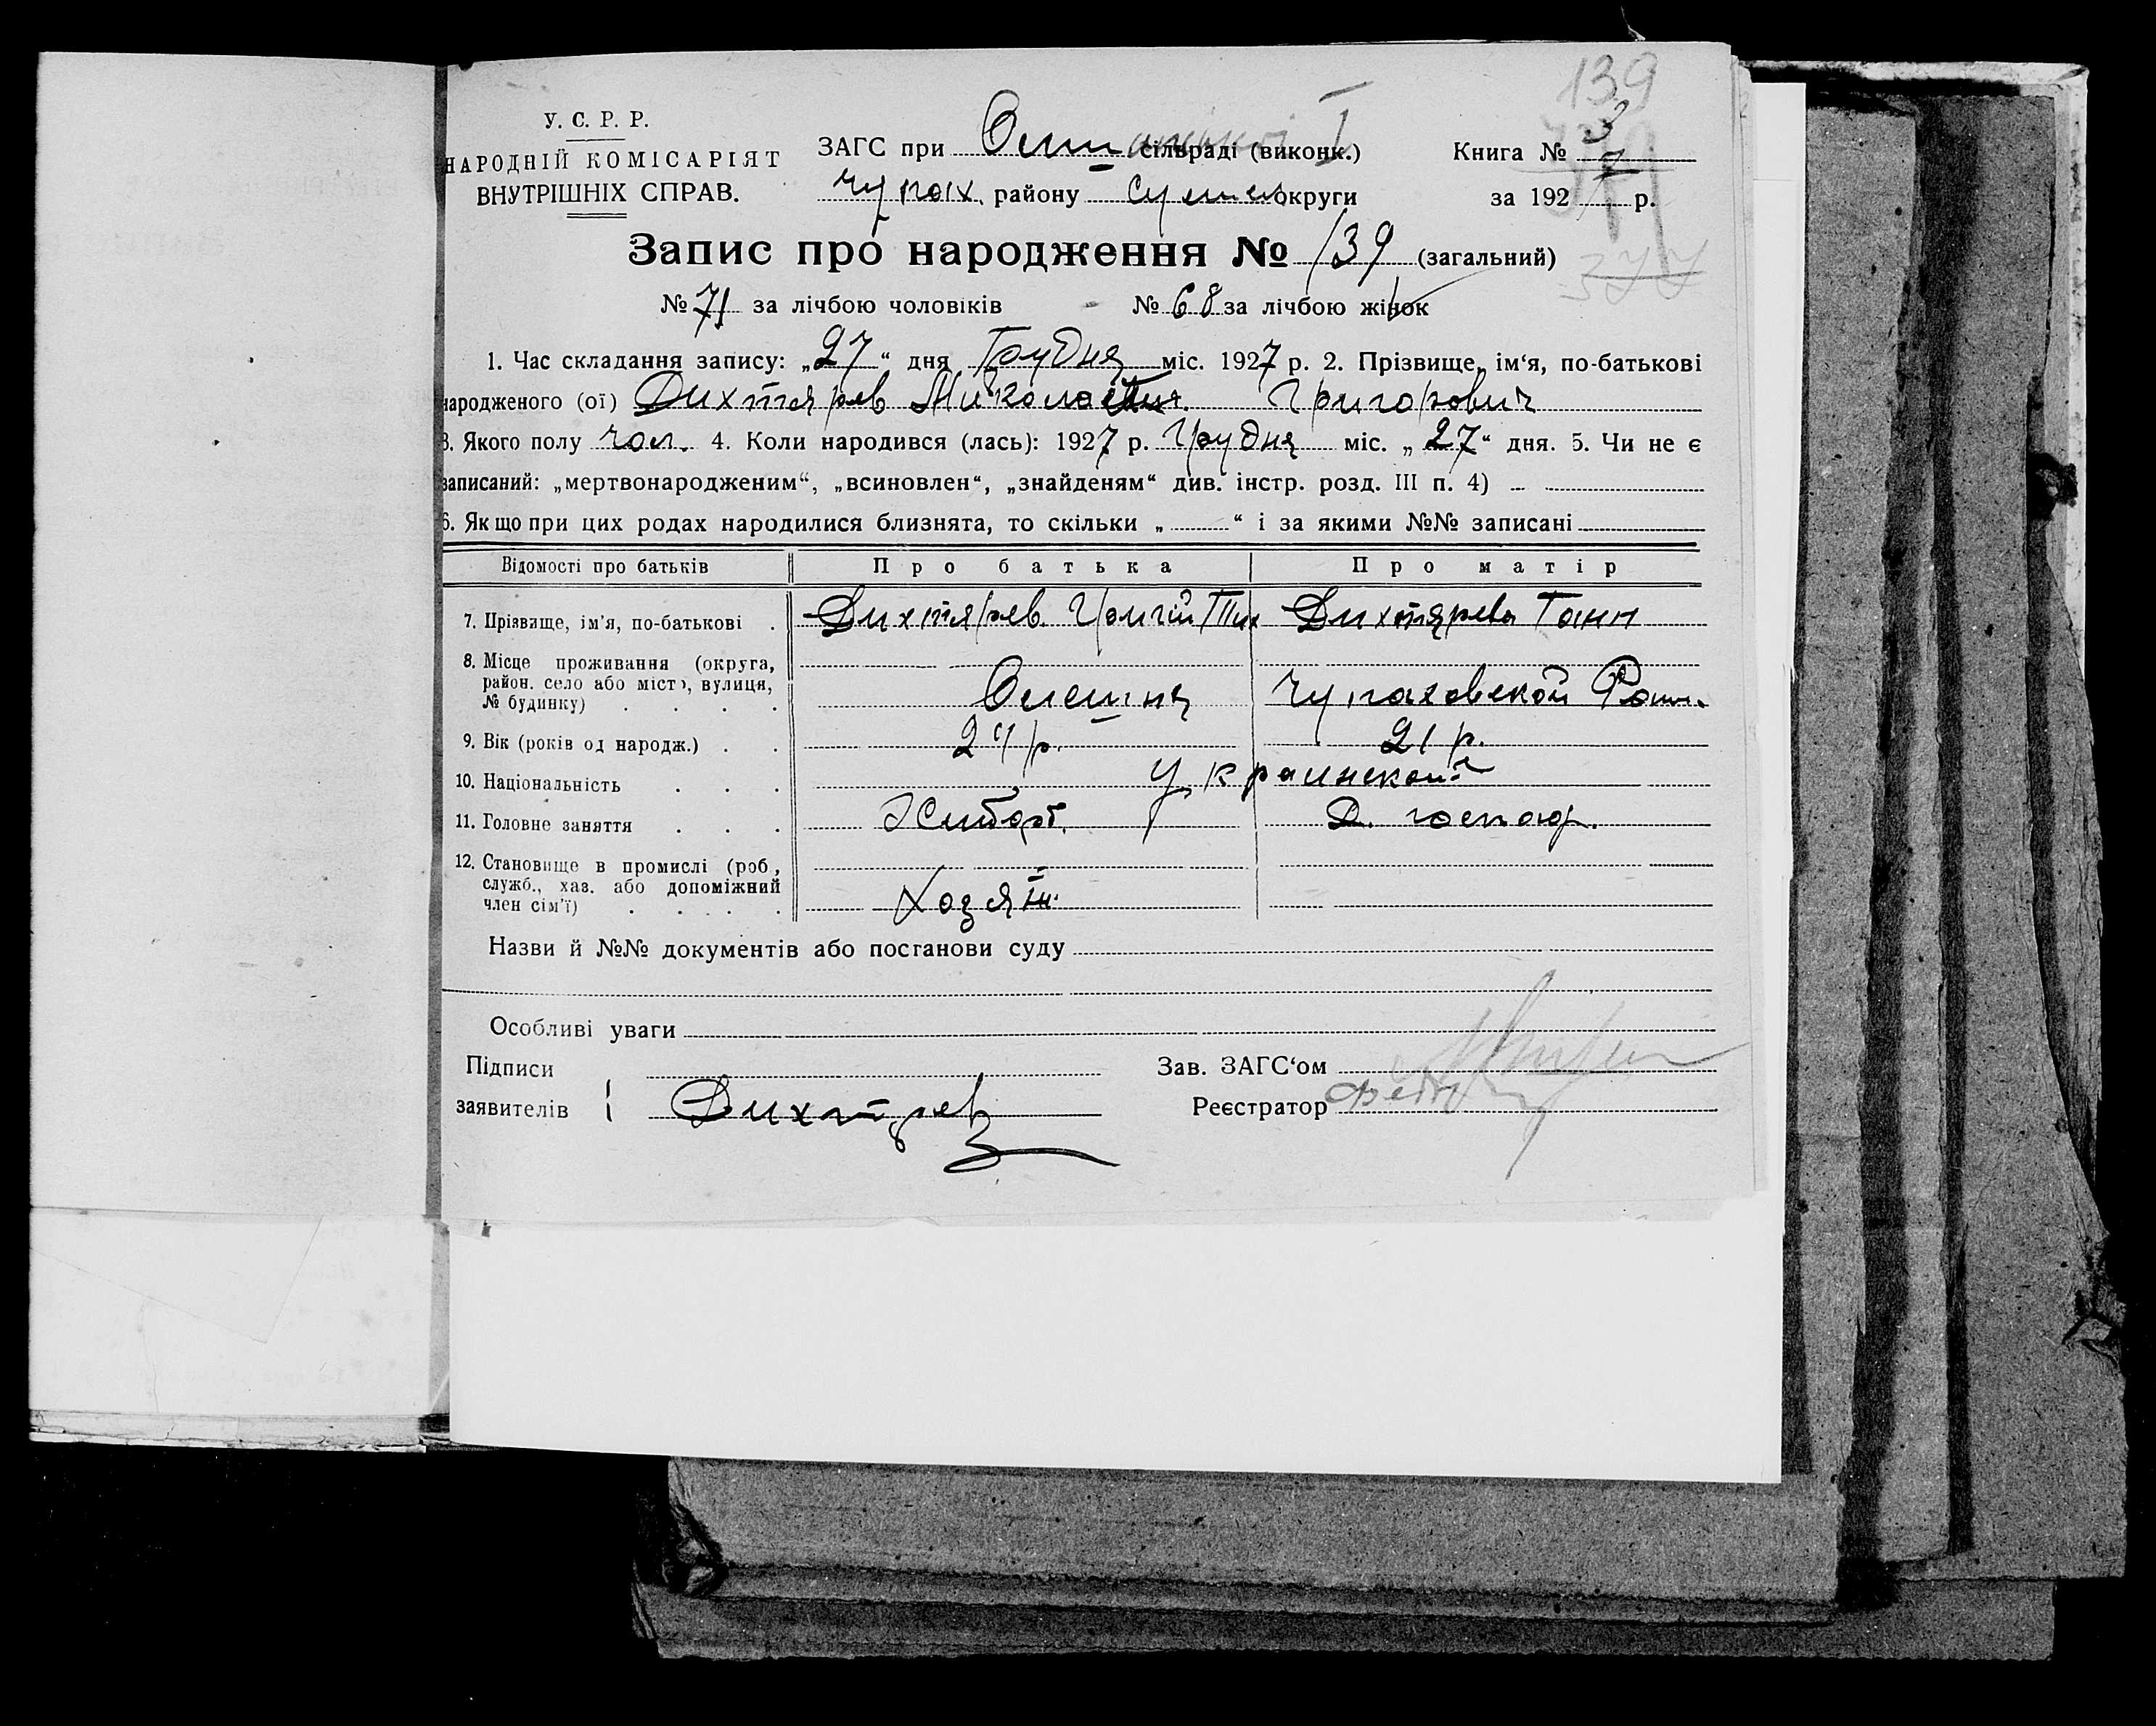 139
У. С. Р. Р.
НАРОДНІЙ КОМІСАРІЯТ
ВНУТРІШНІХ СПРАВ.
ЗАГС при сільраді (виконк.) I
Чупах. району Сумськ округи
Книга № 3
за 1927 р.
377
Запис про народження № 139 (загальний)
№ 71 за лічбою чоловіків № 68 за лічбою жінок
1. Час складання запису: „27“ дня Грудня міс. 1927 р. 2. Прізвище, ім‘я, по-батькові
народженого (ої) Дихтярев Микола Григорович
3. Якого полу чол. 4. Коли народився (лась): 1927 р. Грудня міс. „27“ дня. 5. Чи не є
записаний: „мертвонародженим“, „всиновлен“, „знайденям“ див. інстр. розд. III п. 4)
6. Якщо при цих родах народилися близнята, то скільки „ “ і за якими №№ записані
Відомості про батьків Про батька Про матір
7. Прізвище, ім‘я, по-батькові . Дихтярев. Григій Тих Дихтярева Ганн
8. Місце проживання (округа,
район. село або місто, вулиця,
№ будинку) . . . . Олешня Чупаховской Рай.
9. Вік (років од народж.) . . 24 р. 21 р.
10. Національність . . . Украинской
11. Головне заняття . . . Хлибороб. Д. господ.
12. Становище в промислі (роб.,
служб., хаз. або допоміжний
член сім‘ї) . . . . Хозяїн.
Назви й №№ документів або постанови суду
Особливі уваги
Підписи
заявителів Дихтярев
Зав. ЗАГС‘ом
Реєстратор